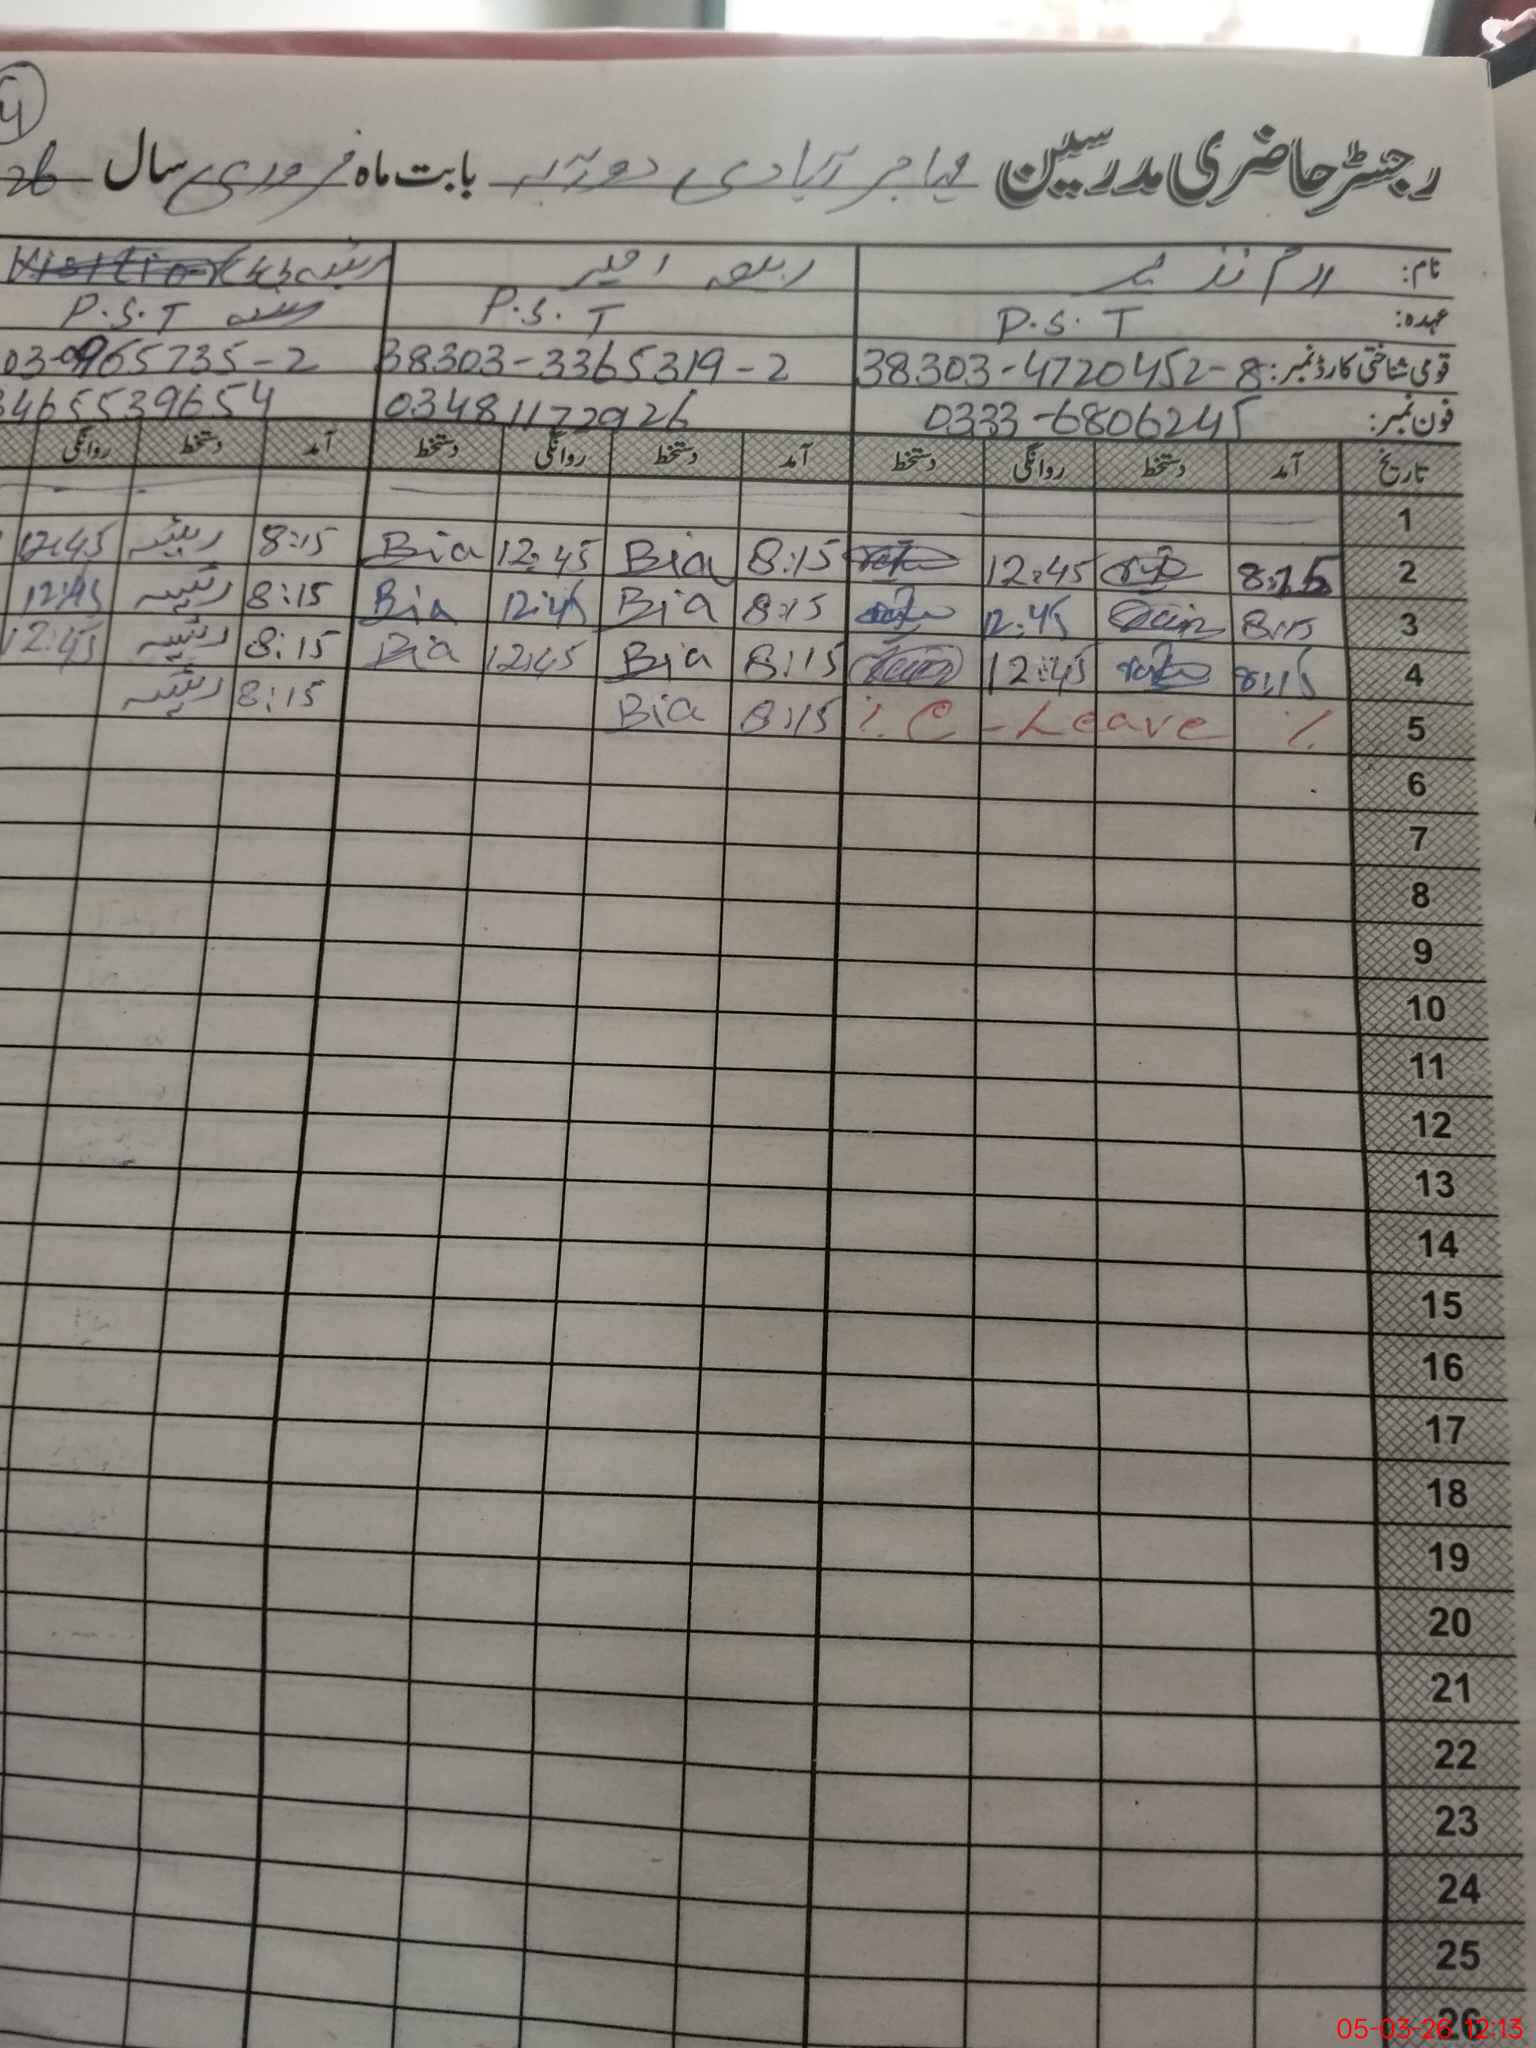 4
رجسٹر حاضری مدرسین مہاجر آبادی بابت ماہ فروری سال 26
نام: ارم نذیر
عہدہ: P.S.T P.S.T P.S.T
قومی شناختی کارڈ نمبر: 38303-4720452-8 38303-3365319-2
فون نمبر: 0333-6806245 03481172926 34655539654
تاریخ آمد دستخط روانگی دستخط آمد دستخط روانگی دستخط آمد دستخط روانگی
1
2 8:15 12:45 8:15 Bia 12:45 Bia 8:15 12:45
3 8:15 12:45 8:15 Bia 12:45 Bia 8:15 12:45
4 8:15 12:45 8:15 Bia 12:45 Bia 8:15 12:45
5 ٪ C-Leave ٪ 8:15 Bia 8:15
6
7
8
9
10
11
12
13
14
15
16
17
18
19
20
21
22
23
24
25
26
05-03-26 12:13